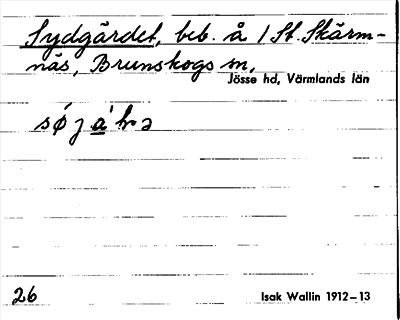 Sydgärdet, beb. å 1/St. Skärm-
näs, Brunskogs sn,
Jösse hd, Värmlands län
26
Isak Wallin 1912–13